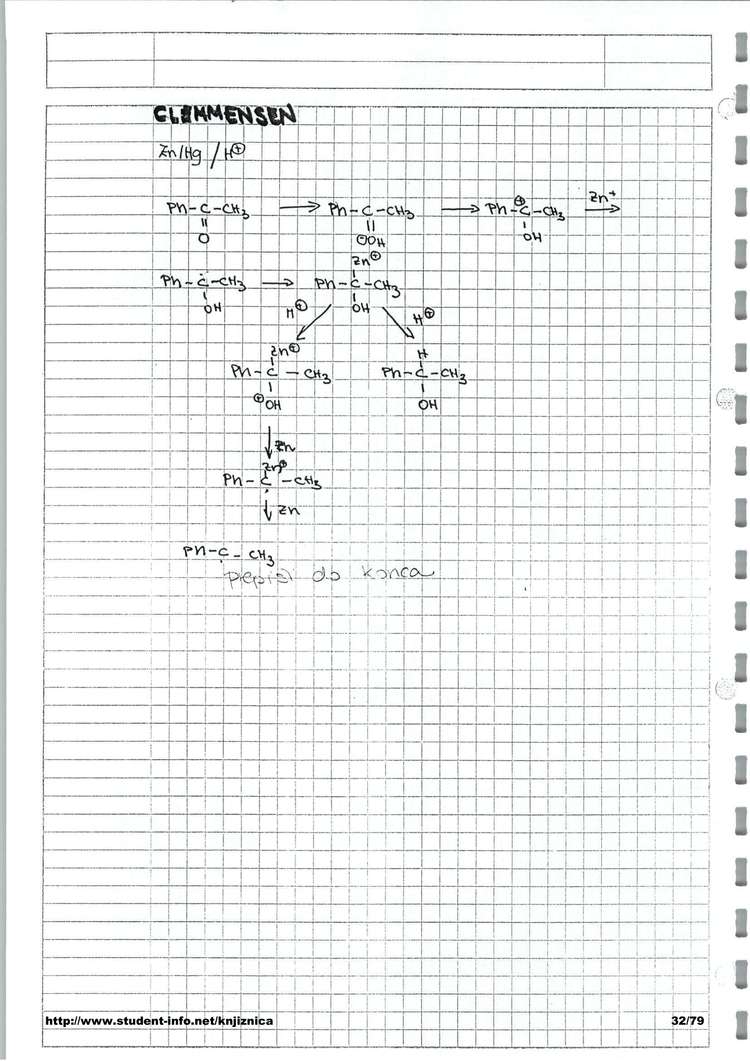 CLEMMENSEN
Zn/Hg / H⊕
Ph-C-CH3 → Ph-C-CH3 → Ph-C-CH3 Zn+ →
⊕
|| || |
O ⊕OH OH
Zn⊕
Ph-Ċ-CH3 → Ph-C-CH3
OH H⊕ OH H⊕
Zn⊕ H
Ph-C-CH3 Ph-C-CH3
⊕OH OH
↓ Zn
Zn⊕
Ph-C-CH3
↓ Zn
Ph-C-CH3
prepiši do konca
http://www.student-info.net/knjiznica 32/79